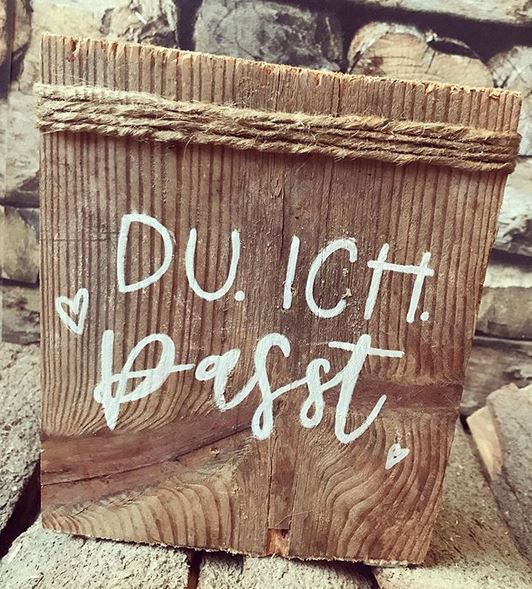 DU. ICH.
passt